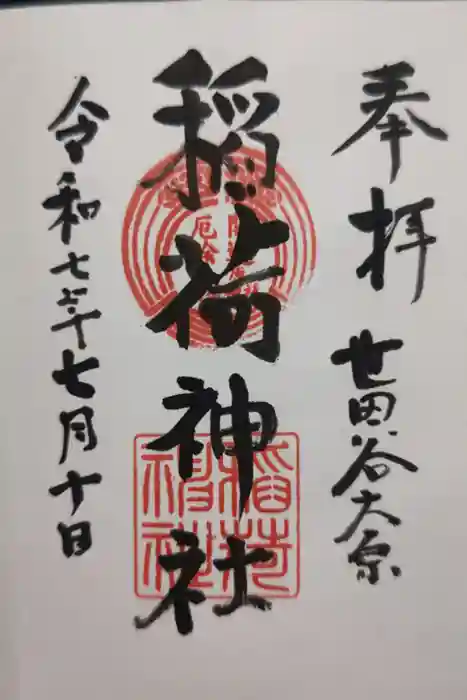 奉拝
世田谷大原
稲荷神社
稲荷神社
令和七年七月十日